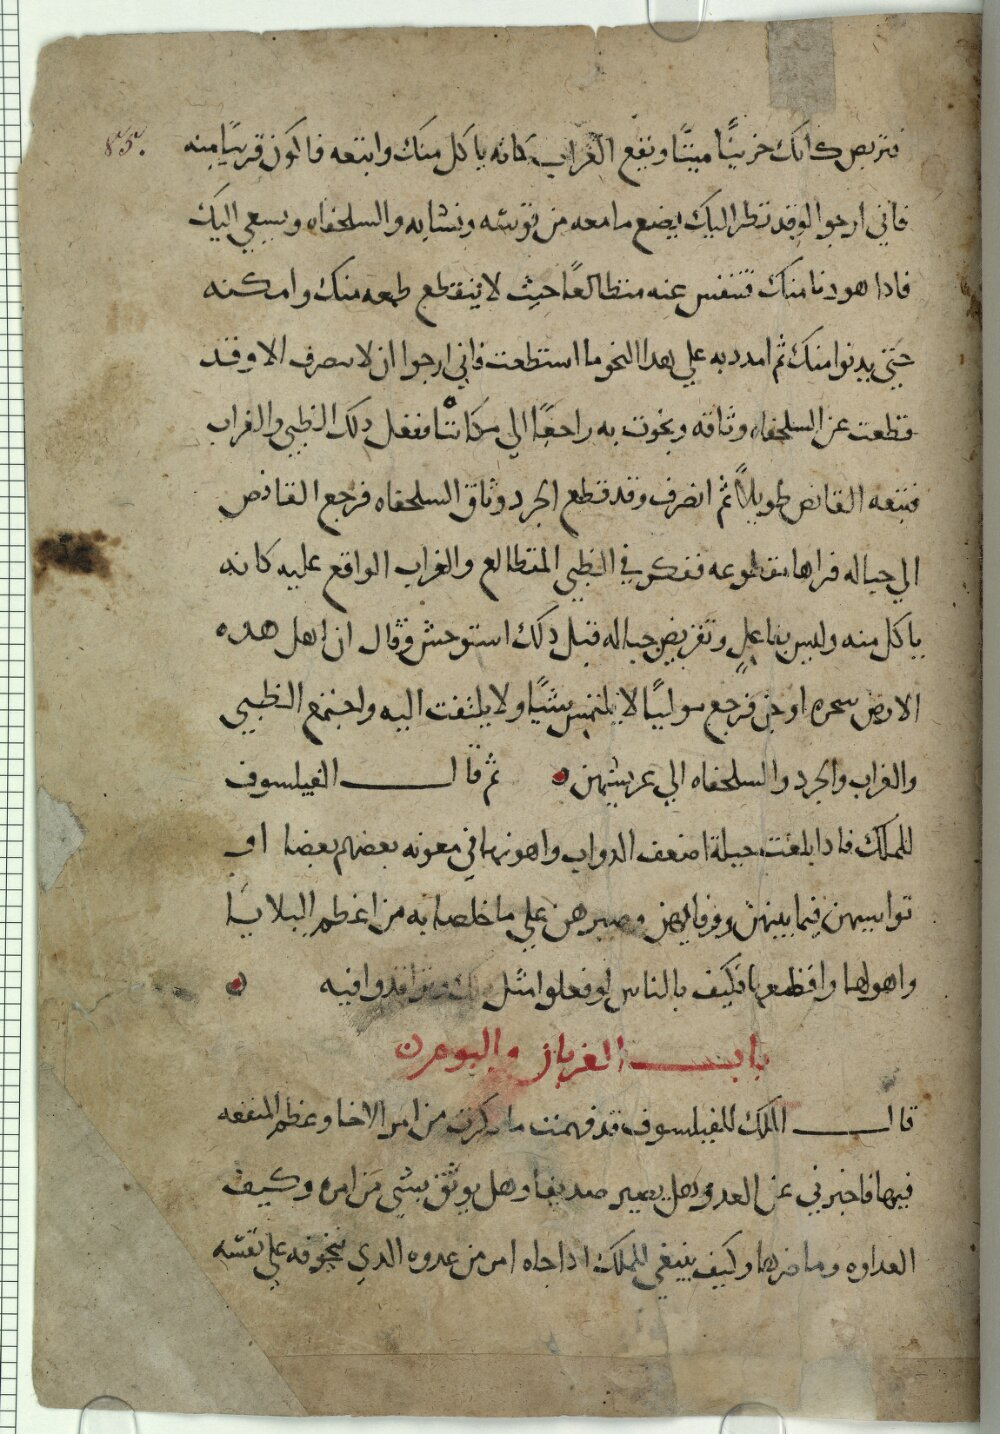 فتربص كانك خربيًا ميتًا ويقع الغراب كانه ياكل منك واتبعه فاكون قريبًا منه
85.
فاني ارجوا لو قد نظر اليك يضع ما معه من قوسه ونشابه والسلحفاه ويسعي اليك
فادا هو دنا منك فتنفس عنه متظالعًا حيث لا ينقطع طمعه منك وامكنه
حتي يدنوا منك ثم امدد به علي هدا النحو ما استطعت فاني ارجوا ان لا ينصرف الا وقد
قطعت عن السلحفاه وثاقه ونجوت به راجعًا الي مكاننا ففعل دلك الظبي والغراب
فتبعه القانص طويلاً ثم انصرف وقد قطع الجرد وثاق السلحفاه فرجع القانص
الي حباله فراها مقطوعه ففكر في الظبي المتظالع والغراب الواقع عليه كانه
ياكل منه وليس بفاعلٍ وتقريض حباله قبل دلك استوحش وقال ان اهل هده
الارض سحره او جن فرجع موليًا لا يلتمس شيًا ولا يلتفت اليه واجتمع الظبي
والغراب والجرد والسلحفاه الي عريشهن ثم قال الفيلسوف
للملك فادا بلغت حيلة اضعف الدواب واهونها في معونه بعضهم بعضا او
تواسيهن فيما بينهن ووفايهن وصبرهن علي ما خلصا به من اعظم البلايا
واهولها وافظعها فكيف بالناس لو فعلوا مثل دلك وترافدوا فيه
باب الغربان والبومرن
قال الملك للفيلسوف قد فهمت ما دكرت من امر الاخا وعظم المنفعه
فيها فاخبرني عن العدو هل يصير صديقا وهل يوثق بشي من امره وكيف
العداوه وما ضرها وكيف ينبغي للملك ادا جاه امر من عدوه الدي يتخوفه علي نفسه